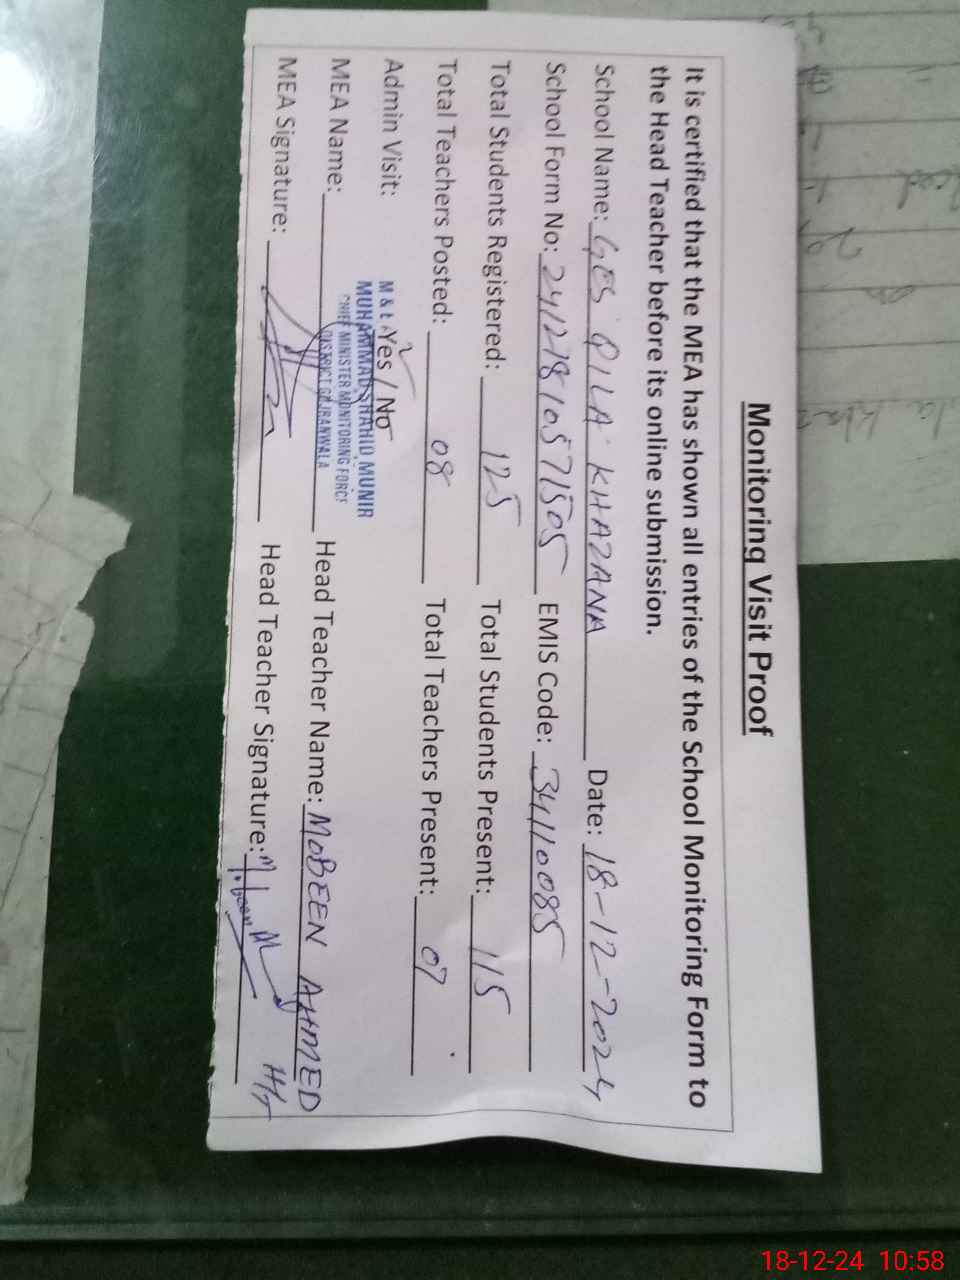 Monitoring Visit Proof
It is certified that the MEA has shown all entries of the School Monitoring Form to
the Head Teacher before its online submission.
School Name: GES QILA KHAZANA Date: 18-12-2024
School Form No: 24122781057 1505 EMIS Code: 34110085
Total Students Registered: 125 Total Students Present: 115
Total Teachers Posted: 08 Total Teachers Present: 07
Admin Visit: Yes / No
M & E
MUHAMMAD SHAHID MUNIR
CHIEF MINISTER MONITORING FORCE
DISTRICT GUJRANWALA
MEA Name: Head Teacher Name: MOBEEN AHMED
MEA Signature: Head Teacher Signature: Mobeen
18-12-24 10:58